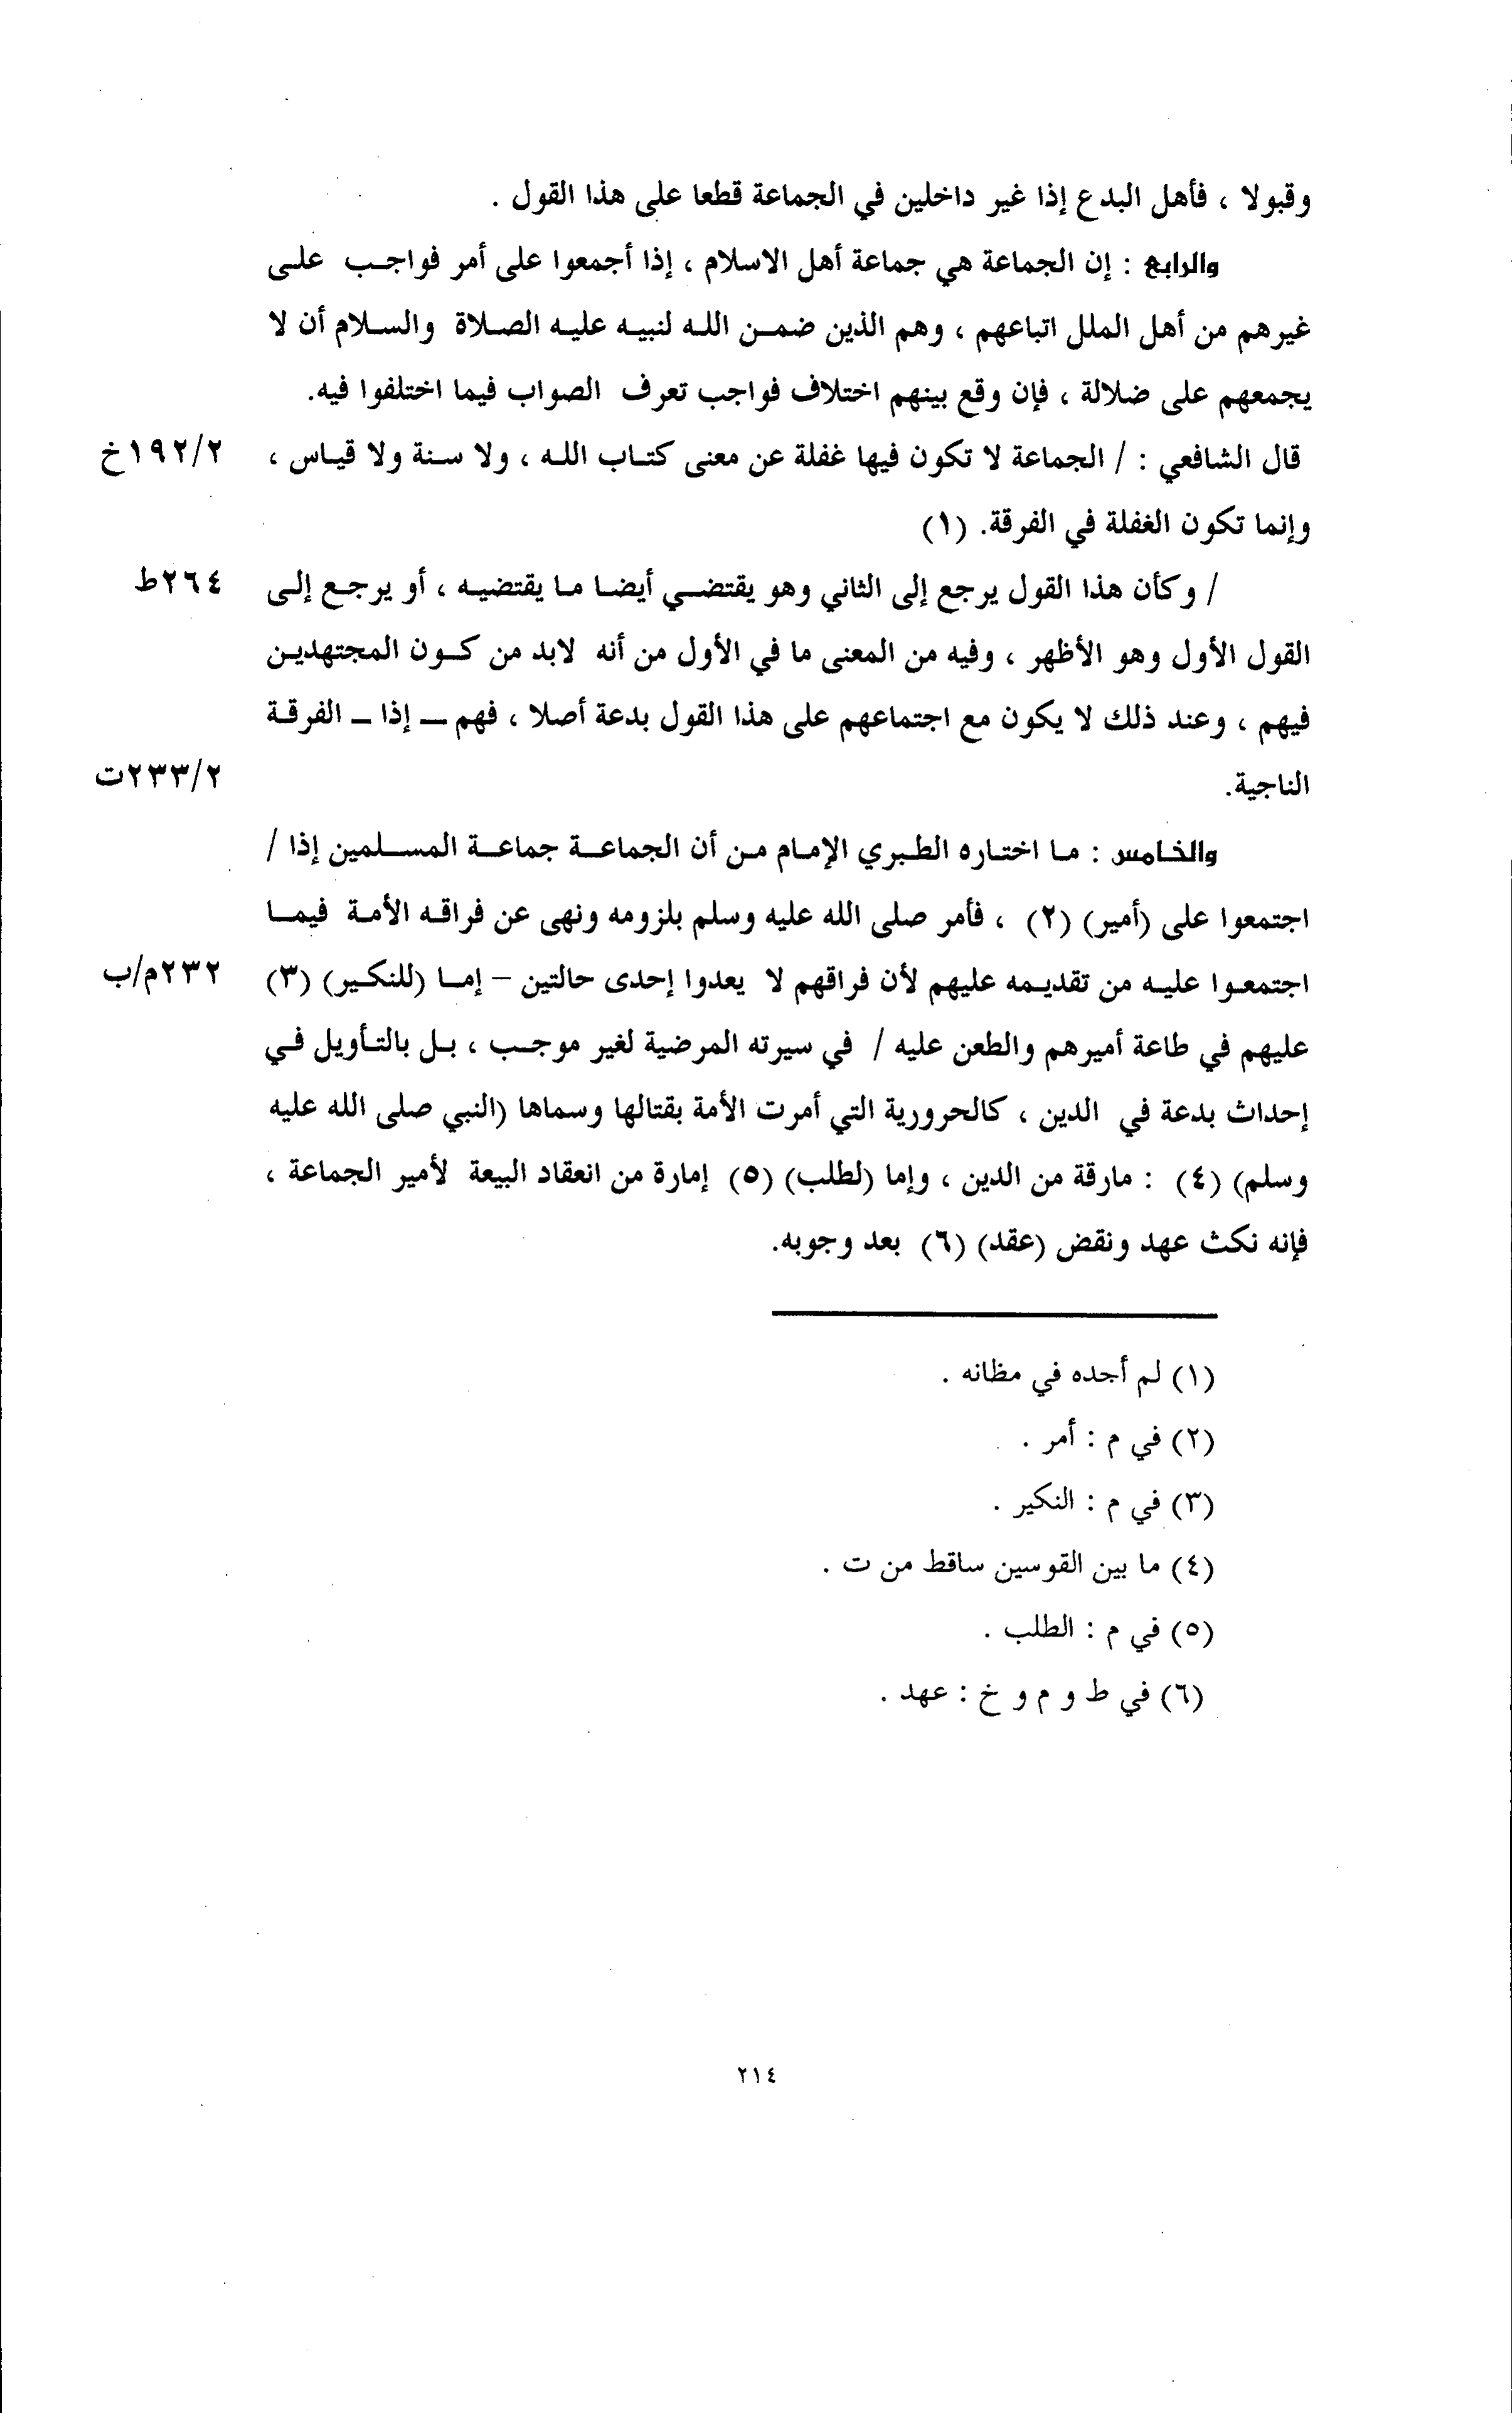 وقبولا ، فأهل البدع إذا غير داخلين في الجماعة قطعا على هذا القول .
والرابع : إن الجماعة هي جماعة أهل الاسلام ، إذا أجمعوا على أمر فواجب على
غيرهم من أهل الملل اتباعهم ، وهم الذين ضمن الله لنبيه عليه الصلاة والسلام أن لا
يجمعهم على ضلالة ، فإن وقع بينهم اختلاف فواجب تعرف الصواب فيما اختلفوا فيه.
قال الشافعي : / الجماعة لا تكون فيها غفلة عن معنى كتاب الله ، ولا سنة ولا قياس ، ١٩٢/٢خ
وإنما تكون الغفلة في الفرقة. (١)
/ وكأن هذا القول يرجع إلى الثاني وهو يقتضي أيضا ما يقتضيه ، أو يرجع إلى ٢٦٤ط
القول الأول وهو الأظهر ، وفيه من المعنى ما في الأول من أنه لابد من كون المجتهدين
فيهم ، وعند ذلك لا يكون مع اجتماعهم على هذا القول بدعة أصلا ، فهم – إذا – الفرقة
الناجية. ٢٣٣/٢ت
والخامس : ما اختاره الطبري الإمام من أن الجماعة جماعة المسلمين إذا /
اجتمعوا على (أمير) (٢) ، فأمر صلى الله عليه وسلم بلزومه ونهى عن فراقه الأمة فيما
اجتمعوا عليه من تقديمه عليهم لأن فراقهم لا يعدوا إحدى حالتين – إما (للنكير) (٣) ٢٣٢م/ب
عليهم في طاعة أميرهم والطعن عليه / في سيرته المرضية لغير موجب ، بل بالتأويل في
إحداث بدعة في الدين ، كالحرورية التي أمرت الأمة بقتالها وسماها (النبي صلى الله عليه
وسلم) (٤) : مارقة من الدين ، وإما (لطلب) (٥) إمارة من انعقاد البيعة لأمير الجماعة ،
فإنه نكث عهد ونقض (عقد) (٦) بعد وجوبه.
(١) لم أجده في مظانه .
(٢) في م : أمر .
(٣) في م : النكير .
(٤) ما بين القوسين ساقط من ت .
(٥) في م : الطلب .
(٦) في ط و م و خ : عهد .
٢١٤